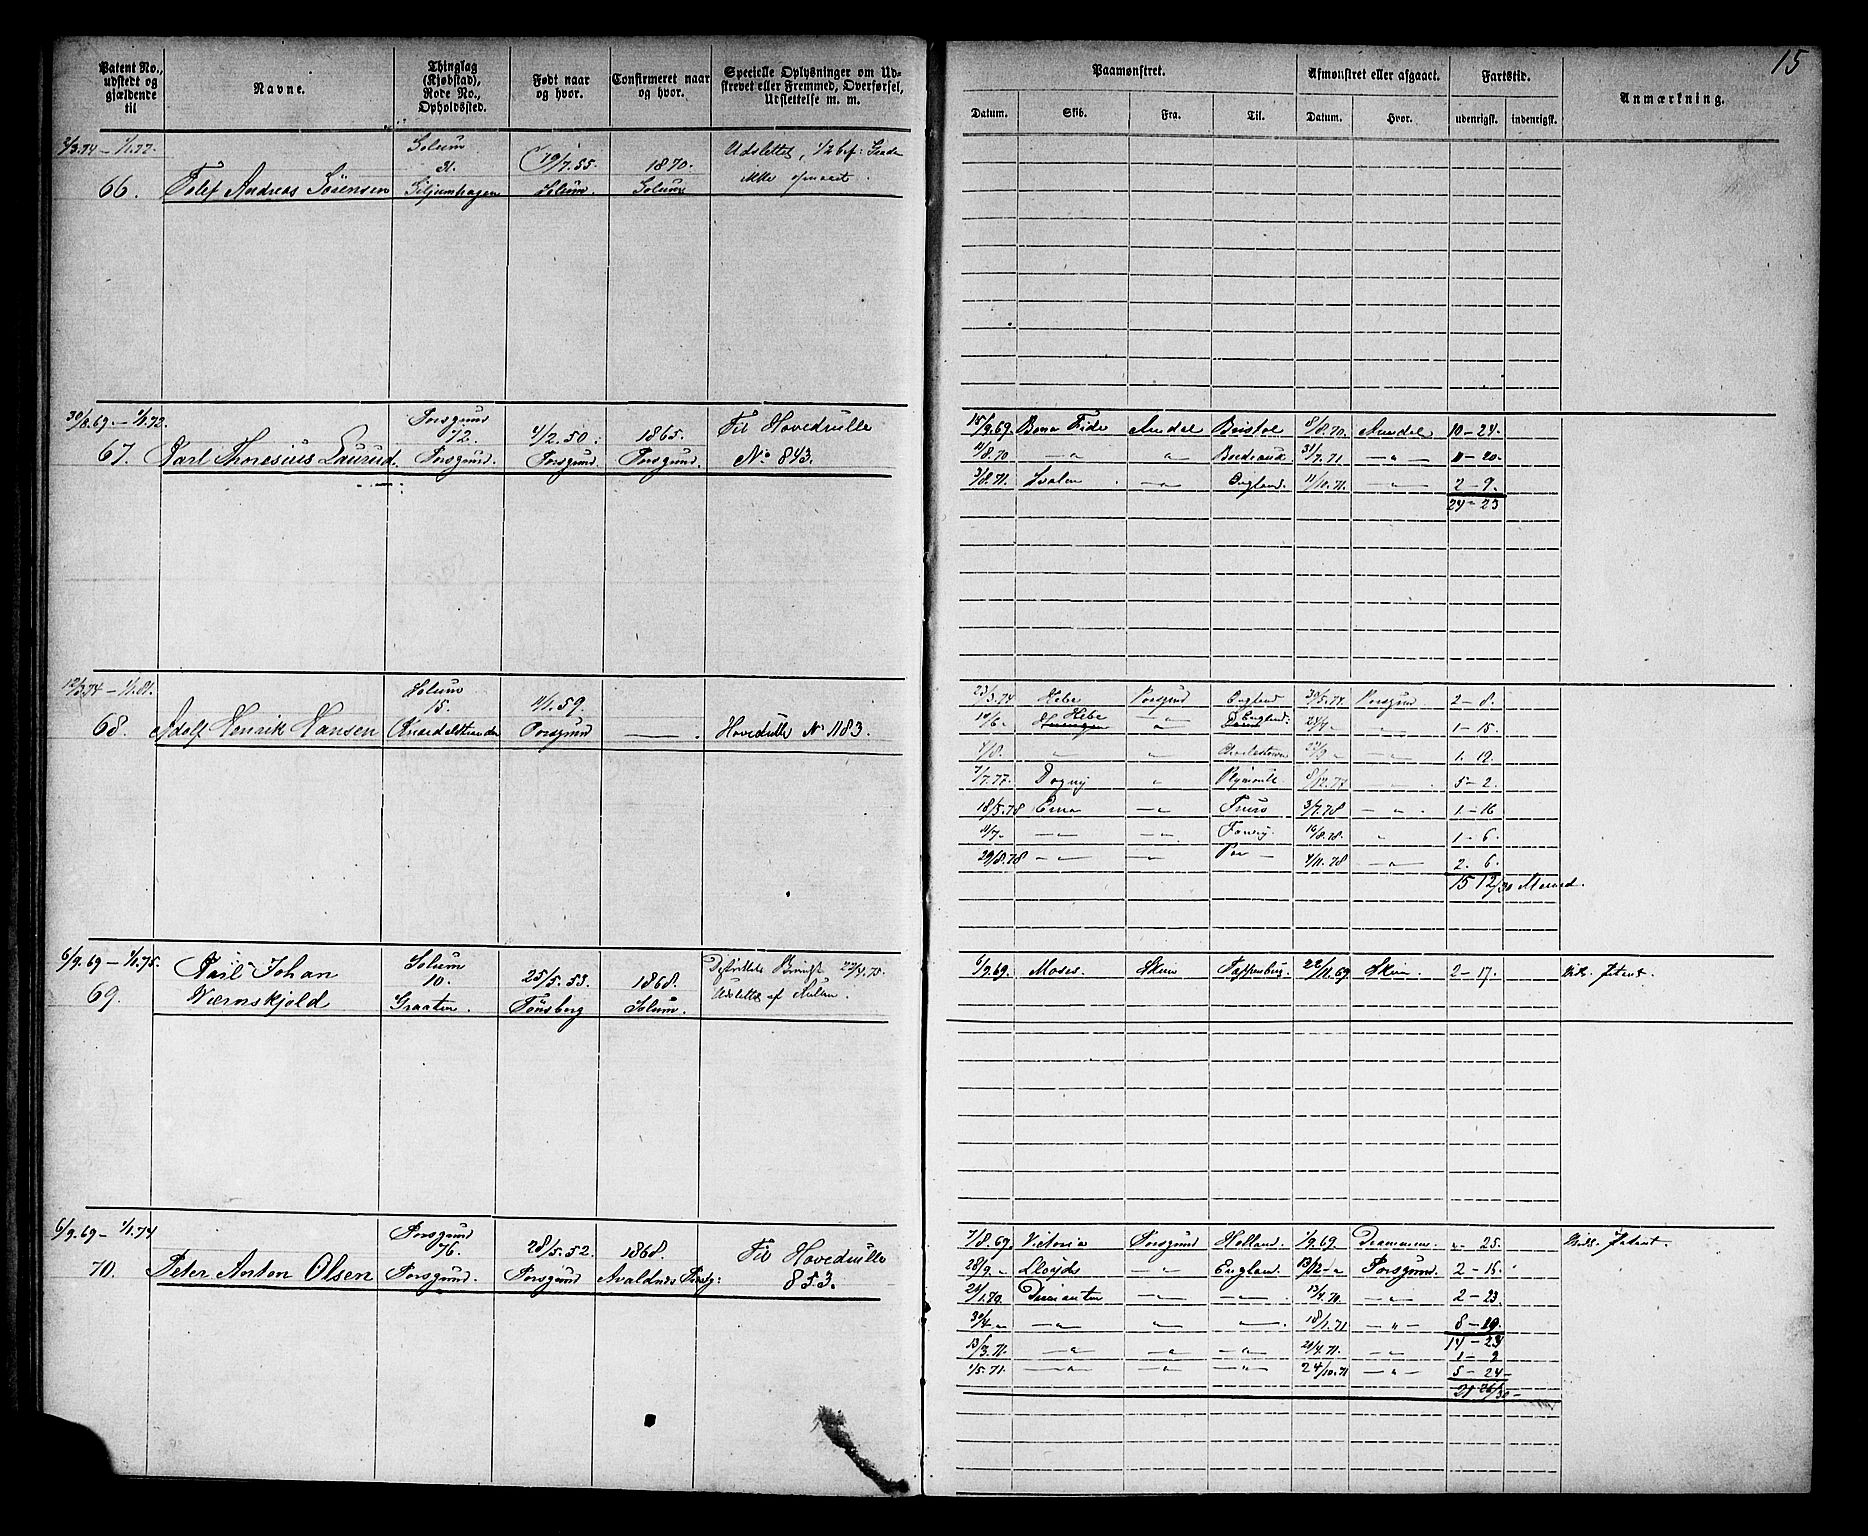 15
Patent No., udstedt og gjældende til
Navne.
Thinglag (Kjøbstad), Rode No., Opholdssted.
Født naar og hvor.
Confirmeret naar og hvor.
Specielle Oplysninger om Udskrevet eller Fremmed, Overførsel, Udslettelse m. m.
Paamønstret.
Afmønstret eller afgaaet.
Fartstid.
Anmærkning.
Datum. Skib. Fra. Til. Datum. Hvor. udenrigsk. indenrigsk.
Solum
31.
19/7.55
1870.
Udslettet,
66. Tolef Andreas Sörensen
Solum.
Solum
30/8.69. – 1/1.72.
Porsgrund
72.
4/2.50.
1865.
Til Hovedrulle
67. Karl Thoresius Laurud.
Porsgrund.
Porsgrund.
Porsgrund.
No 843.
15/9.69. Bona Fide Arendal Bristol 8/8.70. Arendal 10 – 24.
11/8.70 – " – " Bordeaux 31/7.71 – " – 11 – 20.
3/8.71. Svalen – " – England. 11/10.71. – " – 2 – 9.
24 – 23
12/3.74 – 1/1.81.
Solum
15.
1/1.59.
68. Adolf Henrik Hansen
Porsgrund
Hovedrulle No 1183.
23/3.74 Hebe Porsgrund England 30/5.74. Porsgrund 2 – 8.
Hebe – " – England. 1 – 15.
1/8. " " Charlestown " 1. 19.
7/7.77. Dagny " Plymouth 8/12.77 " 5 – 2.
18/5.78 Erna – " – Truro 3/7.78 – " – 1 – 16
11/7 – " – – " – Fowey. 16/8.78. " 1 – 6.
29/8.78 – " – – " – Par – 4/11.78 – " – 2. 6.
15 12/30 Maaned.
6/9.69 – 1/1.75.
Karl Johan
Solum
10.
25/5.53.
1868.
69. Værnskjold
Graaten.
Tönsberg
Solum.
Udslettet af Rullen.
6/9.69. Moses. Skien 22/11.69 Skien. 2 – 17. Patent.
6/9.69 – 1/1.74
Porsgrund
76.
28/5.52.
1868.
Til Hovedrulle
70. Peter Anton Olsen
Porsgrund.
Porsgrund
Avaldsnes
853.
7/8.69. Victoria Porsgrund Holland. 1/9.69. Drammen. " – 25. Patent.
28/9. – Lloyds – " – England. 13/12 – " Porsgrund. 2 – 15.
21/1.70. Diamanten – " – – " – 13/4.70. – " – 2 – 23.
30/4 – " – " – – " – – " – 18/1.71 – " – 8 – 19.
14 – 23
13/3.71. – " – " " 21/4.71. – " – 1 – 9
1/5.71. – " – " – " – 24/10.71 – " – 5 – 24 –
21 26/30 –